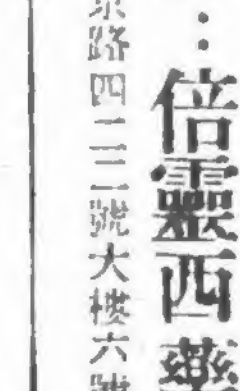 ：倍靈西藥
京路四二二號大樓六號